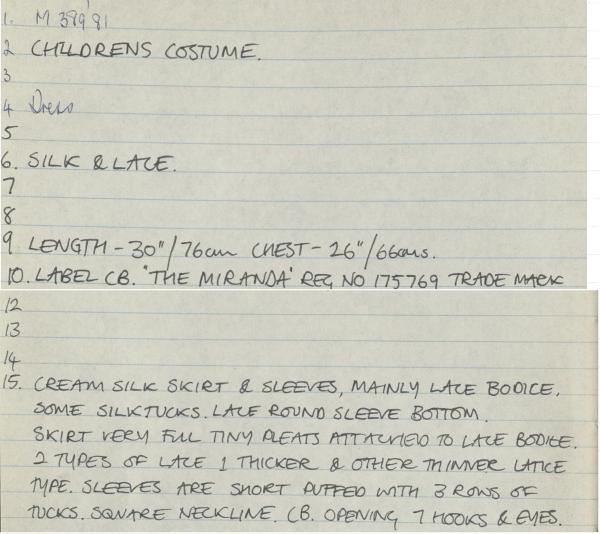 1. M 389'81
2 CHILDRENS COSTUME.
3
4 Dress
5
6. SILK & LACE.
7
8
9 LENGTH - 30"/76cm CHEST - 26"/66cms.
10. LABEL CB. 'THE MIRANDA' REG NO 175769 TRADE MARK
12
13
14
15. CREAM SILK SKIRT & SLEEVES, MAINLY LACE BODICE.
SOME SILK TUCKS. LACE ROUND SLEEVE BOTTOM.
SKIRT VERY FULL TINY PLEATS ATTACHED TO LACE BODICE.
2 TYPES OF LACE 1 THICKER & OTHER THINNER LATICE
TYPE. SLEEVES ARE SHORT PUFFED WITH 3 ROWS OF
TUCKS. SQUARE NECKLINE. CB. OPENING 7 HOOKS & EYES.